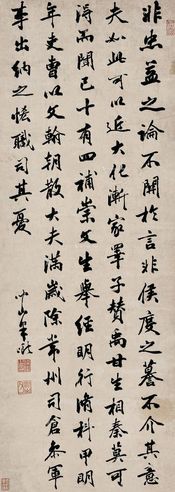 非忠益之論不關於言非侯度之謩不介其意
夫如此可以近大化漸家睪子賛禹甘生相秦莫可
得而聞已十有四補崇文生舉經明行脩科甲明
年吏曹以文翰朝散大夫滿歲除常州司倉叅軍
李出納之悋職司其憂